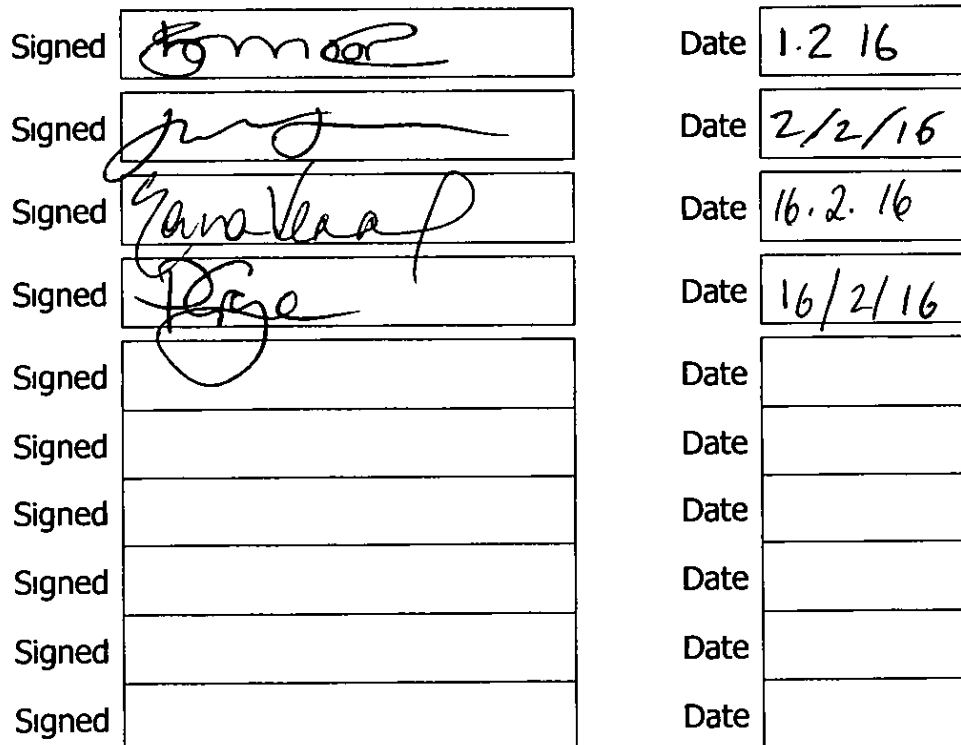 Signed Date 1.2 16
Signed Date 2/2/16
Signed Date 16.2.16
Signed Date 16/2/16
Signed Date
Signed Date
Signed Date
Signed Date
Signed Date
Signed Date